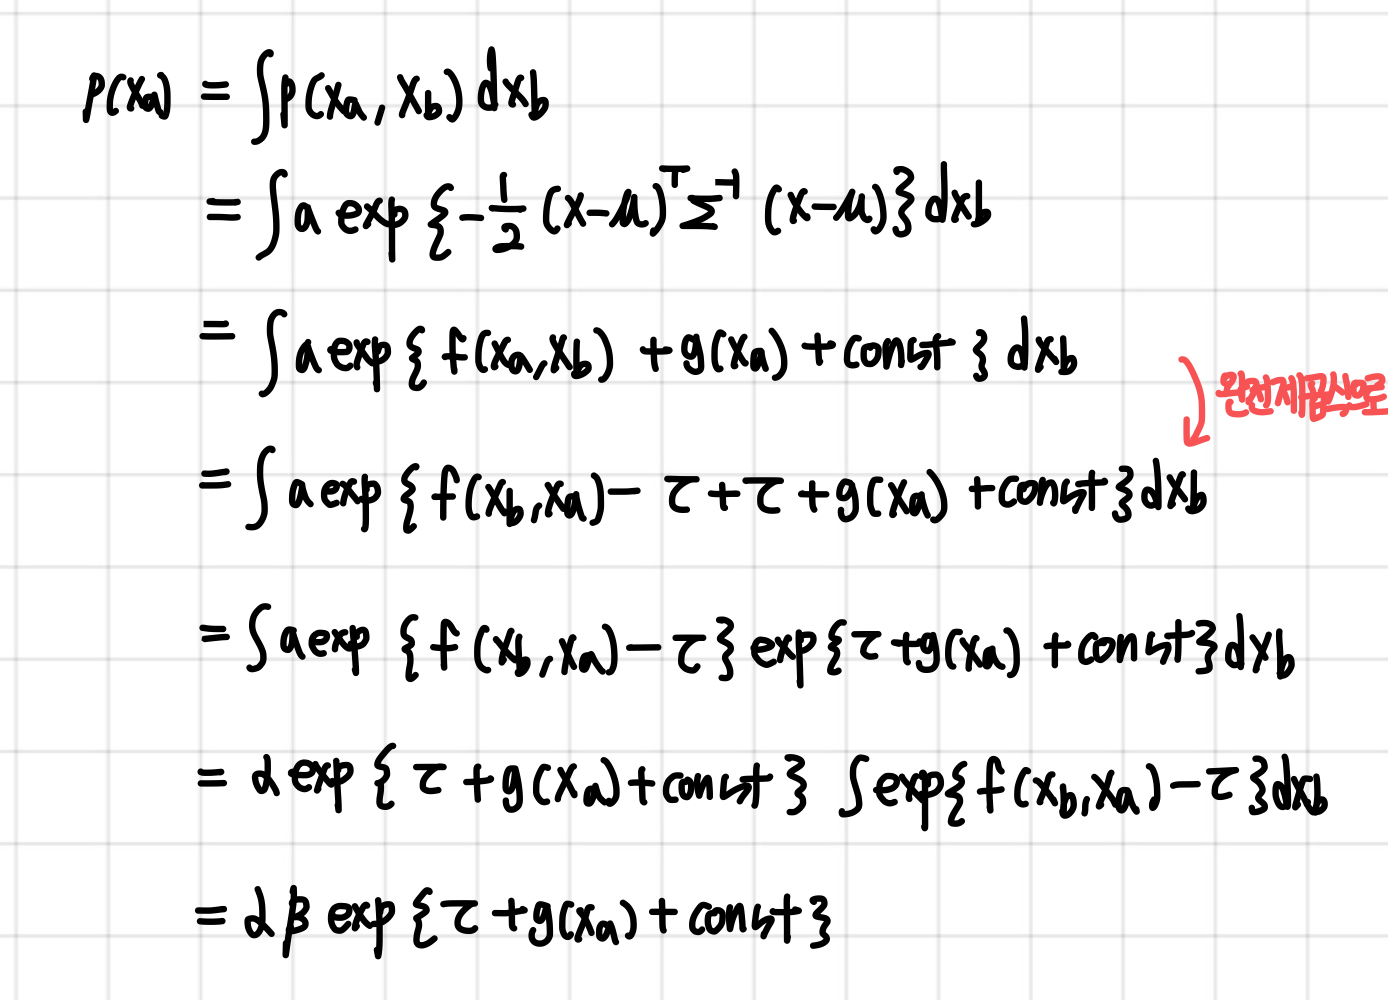 p(xₐ) = ∫p(xₐ, x_b) dx_b
= ∫ a exp {-1/2 (x-μ)ᵀΣ⁻¹ (x-μ)} dx_b
= ∫ a exp { f(xₐ,x_b) + g(xₐ) + const } dx_b
완전제곱식으로
= ∫ a exp { f(x_b,xₐ) - τ + τ + g(xₐ) + const } dx_b
= ∫ a exp { f(x_b,xₐ) - τ } exp{ τ + g(xₐ) + const} dx_b
= α exp { τ + g(xₐ) + const } ∫ exp{ f(x_b,xₐ) - τ } dx_b
= α β exp { τ + g(xₐ) + const }